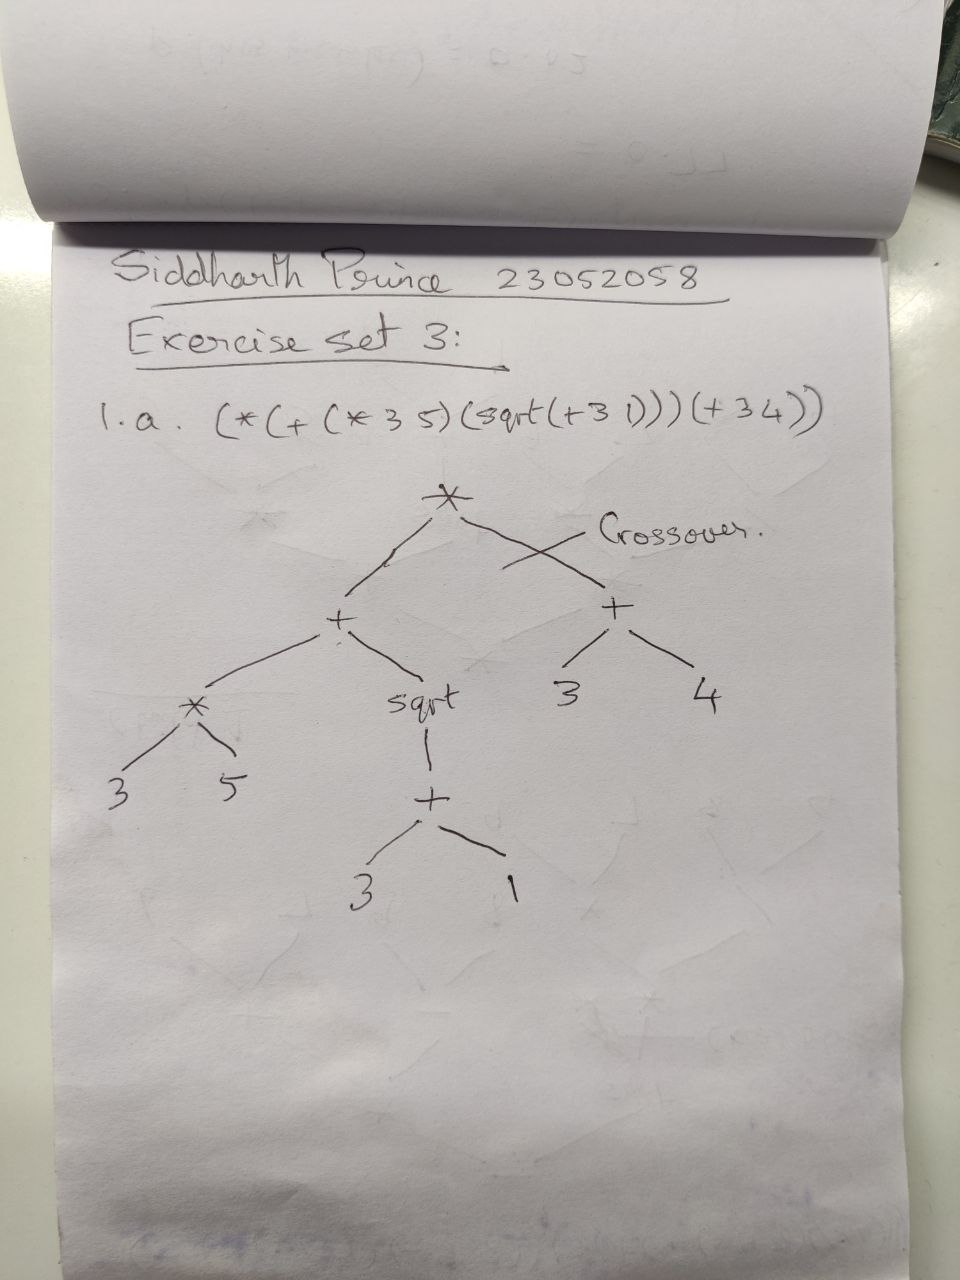 Siddharth Prince 23052058
Exercise set 3:
1.a. (*(+(*35)(sqrt(+31)))(+34))
*
Crossover.
+ +
* sqrt 3 4
3 5
+
3 1